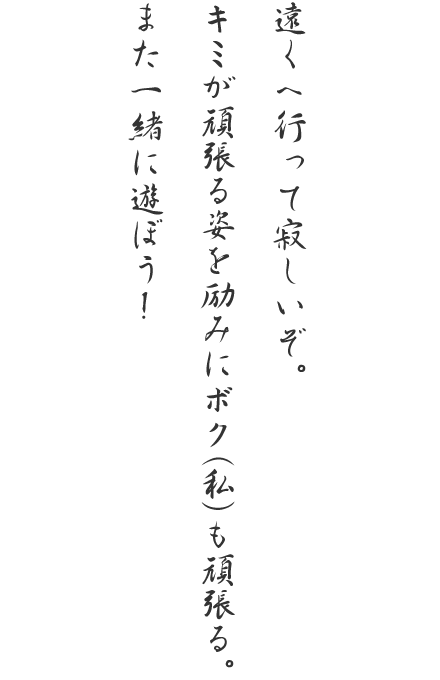 遠くへ行って寂しいぞ。
キミが頑張る姿を励みにボク(私)も頑張る。
また一緒に遊ぼう!